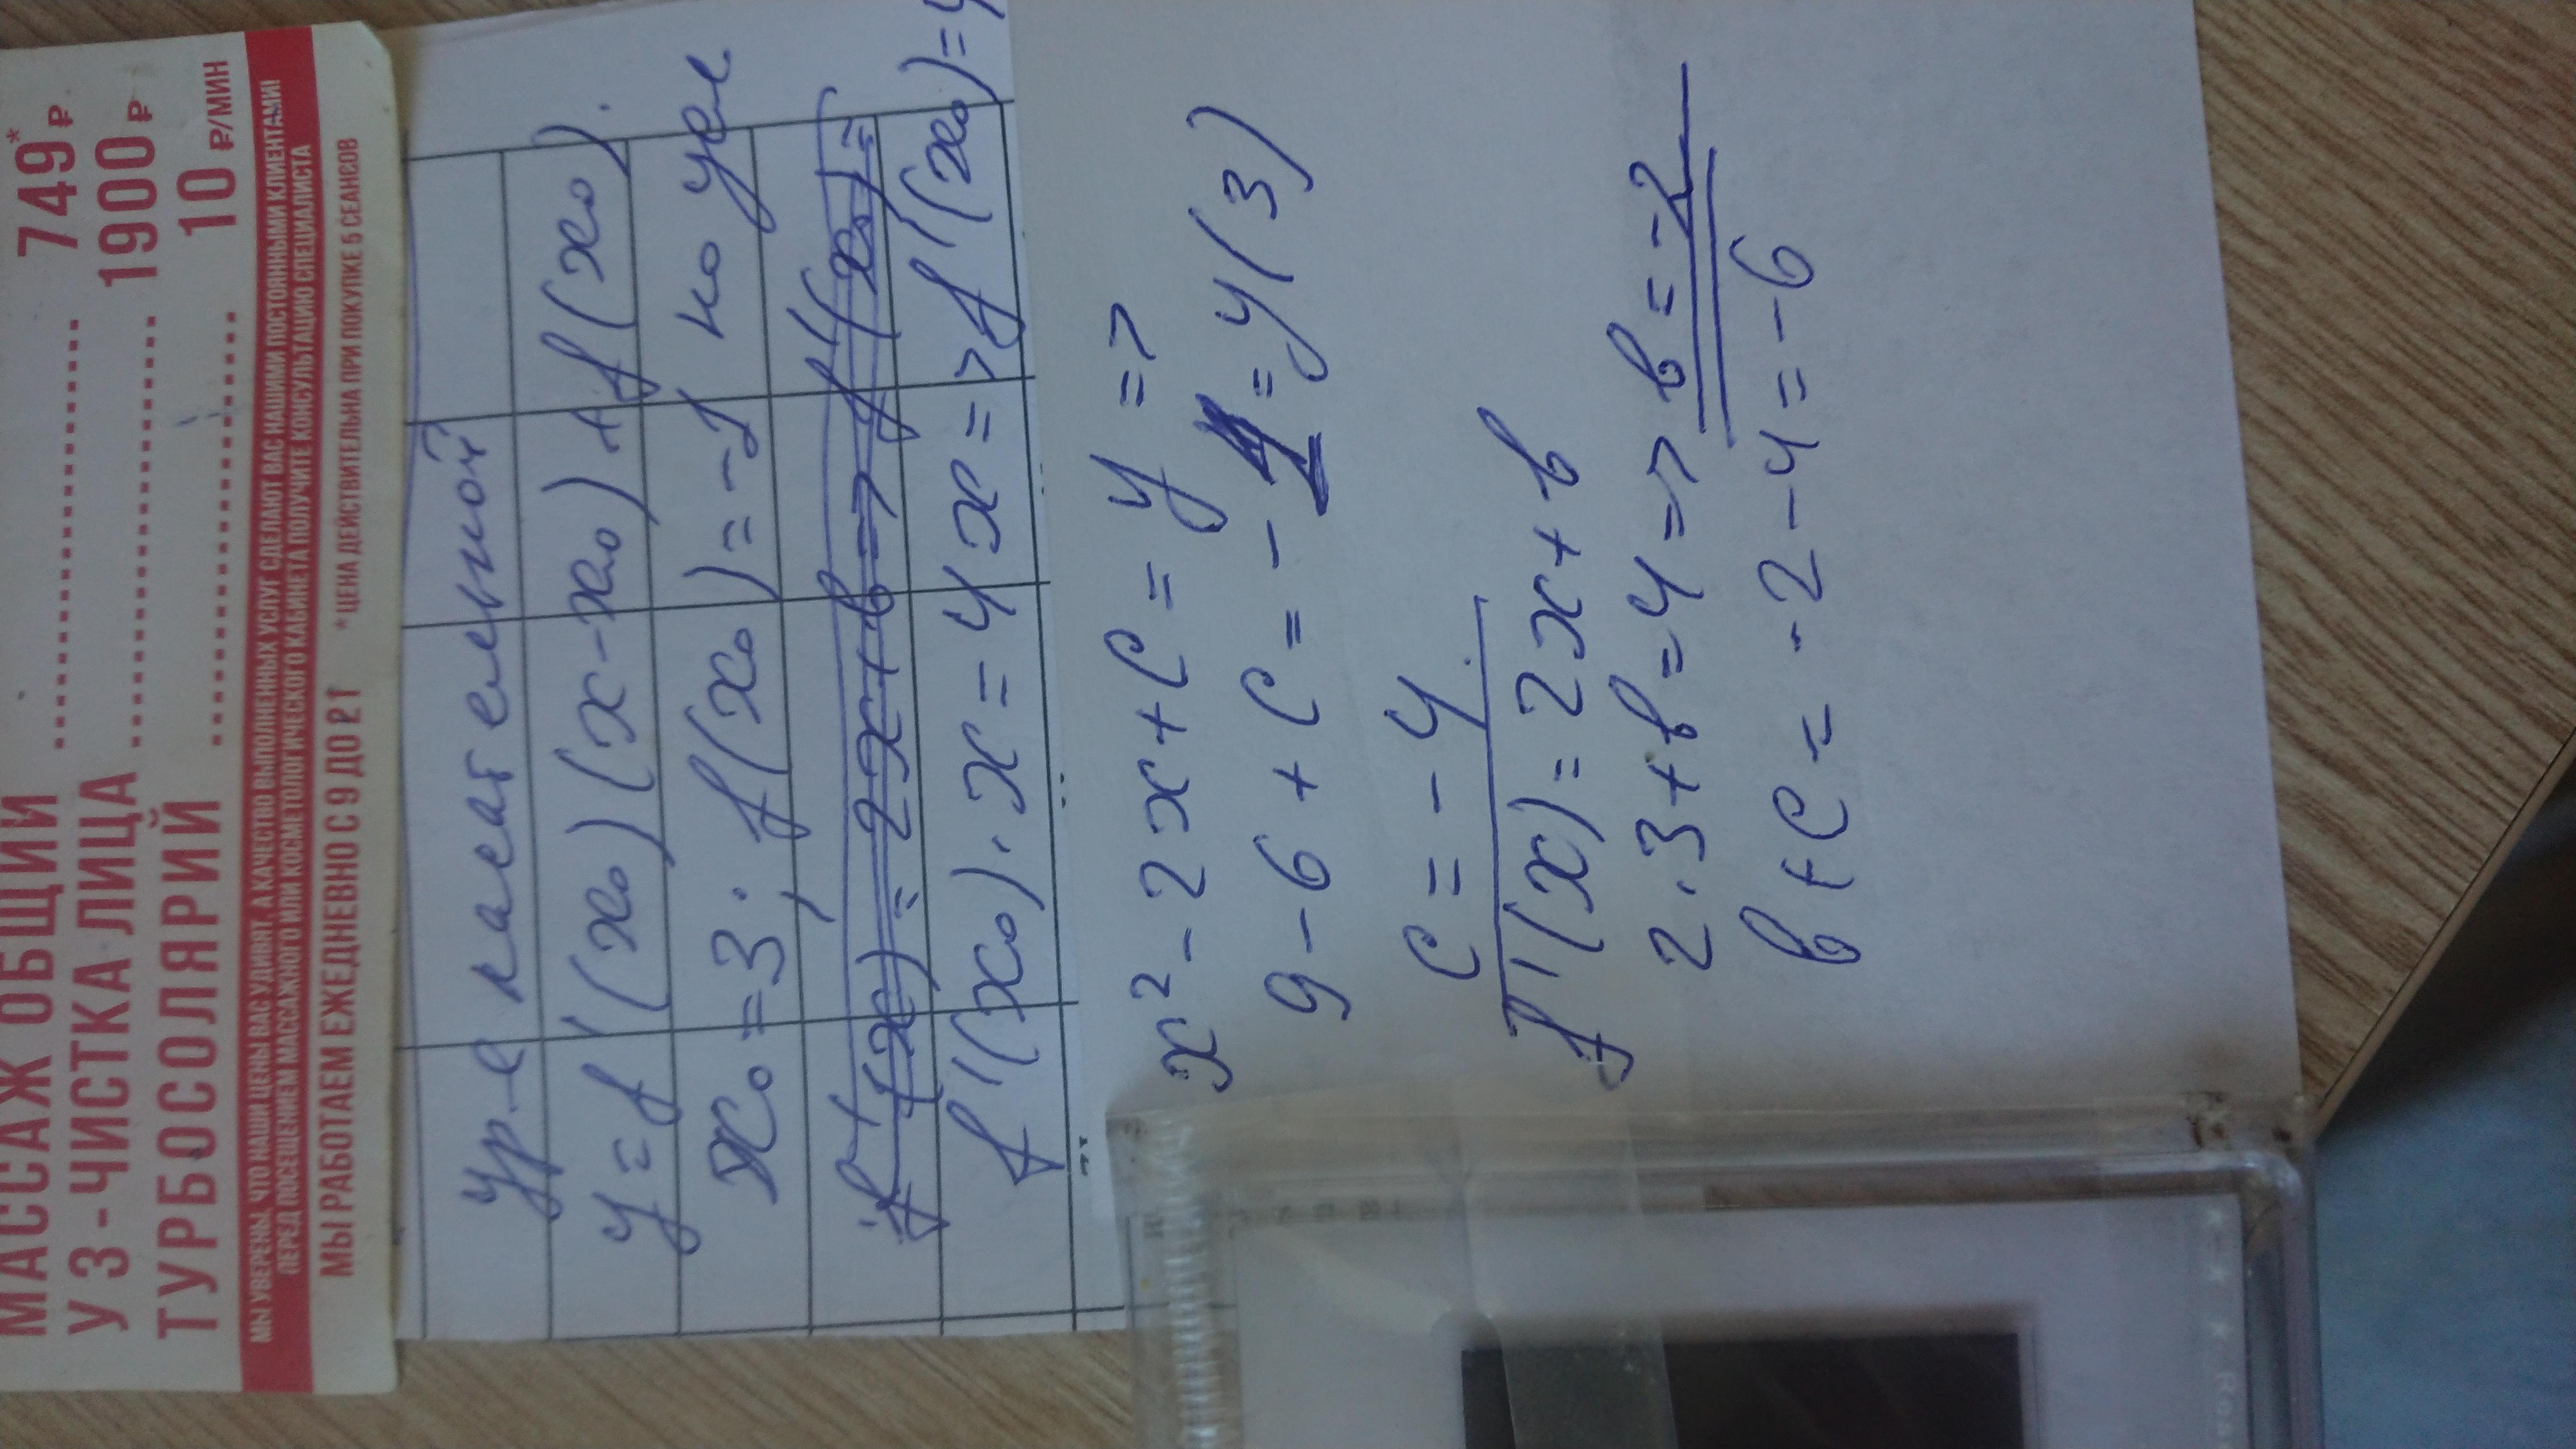 МАССАЖ ОБЩИЙ 749*₽
УЗ-ЧИСТКА ЛИЦА 1900₽
ТУРБОСОЛЯРИЙ 10 ₽/МИН
МЫ УВЕРЕНЫ, ЧТО НАШИ ЦЕНЫ ВАС УДИВЯТ, А КАЧЕСТВО ВЫПОЛНЕННЫХ УСЛУГ СДЕЛАЮТ ВАС НАШИМИ ПОСТОЯННЫМИ КЛИЕНТАМИ!
ПЕРЕД ПОСЕЩЕНИЕМ МАССАЖНОГО ИЛИ КОСМЕТОЛОГИЧЕСКОГО КАБИНЕТА ПОЛУЧИТЕ КОНСУЛЬТАЦИЮ СПЕЦИАЛИСТА
МЫ РАБОТАЕМ ЕЖЕДНЕВНО С 9 ДО 21 *ЦЕНА ДЕЙСТВИТЕЛЬНА ПРИ ПОКУПКЕ 5 СЕАНСОВ
Ур-е касательной
y = f'(x₀)(x-x₀)+f(x₀).
x₀=3; f(x₀)=-1 по усл
f'(x)=2x+b=>f'(x₀)=
f'(x₀)·x=4x=>f'(x₀)=4
x²-2x+c=y=>
9-6+c=-1=y(3)
c=-4
f'(x)=2x+b
2·3+b=4=>b=-2
b+c=-2-4=-6